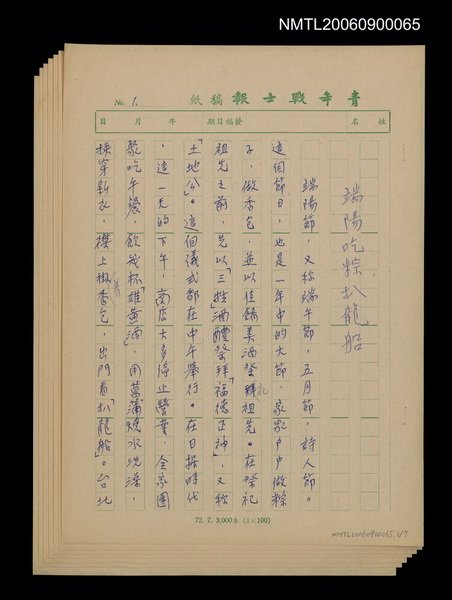 NMTL20060900065
青年戰士報稿紙
No. 1.
姓名 發稿日期 年 月 日
端陽吃粽扒龍船
端陽節,又称端午節,五月節,詩人節。
這個節日,也是一年中的大節,家家戶戶做粽
子,做香包,並以佳餚美酒祭祀祖先。在祭祀
祖先之前,先以「三牲」酒醴祭拜「福德正神」,又称
「土地公」。這個儀式都在中午舉行。在日据時代
,這一天的下午,商店大多停止營業,全家團
聚吃午餐,飲幾杯「雄黃酒」,用菖蒲燒水洗澡,
換穿新衣,襟上掛香包,出門看「扒龍船」。台北
72. 7. 3,000本 (1×100)
NMTL20060900065, 1/7